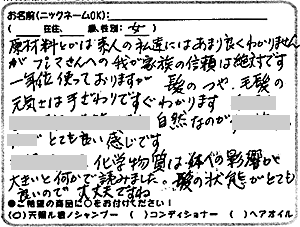 お名前(ニックネームOK):
( 在住、 歳、性別: 女 )
原材料とかは素人の私達にはあまり良くわかりません
が プーマさんへの我が家族の信頼は絶対です
一年位使っておりますが 髪のつや、毛髪の
元気さは手ざわりですぐわかります
自然なのが
とても良い感じです
化学物質は体への影響が
大きいと何かで読みました。髪の状態がとても
良いので 丈夫ですね
◎ご希望の商品に○をお付けください!
(○)天然ル君ノシャンプー ( )コンディショナー ( )ヘアオイル